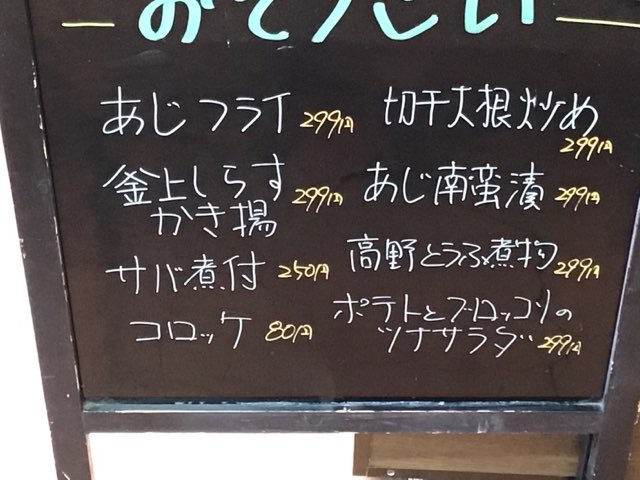 おそうざい
あじフライ 299円
釜上しらす
かき揚 299円
サバ煮付 250円
コロッケ 80円
切干大根炒め
299円
あじ南蛮漬 299円
高野とうふ煮物 299円
ポテトとブロッコリの
ツナサラダ 299円